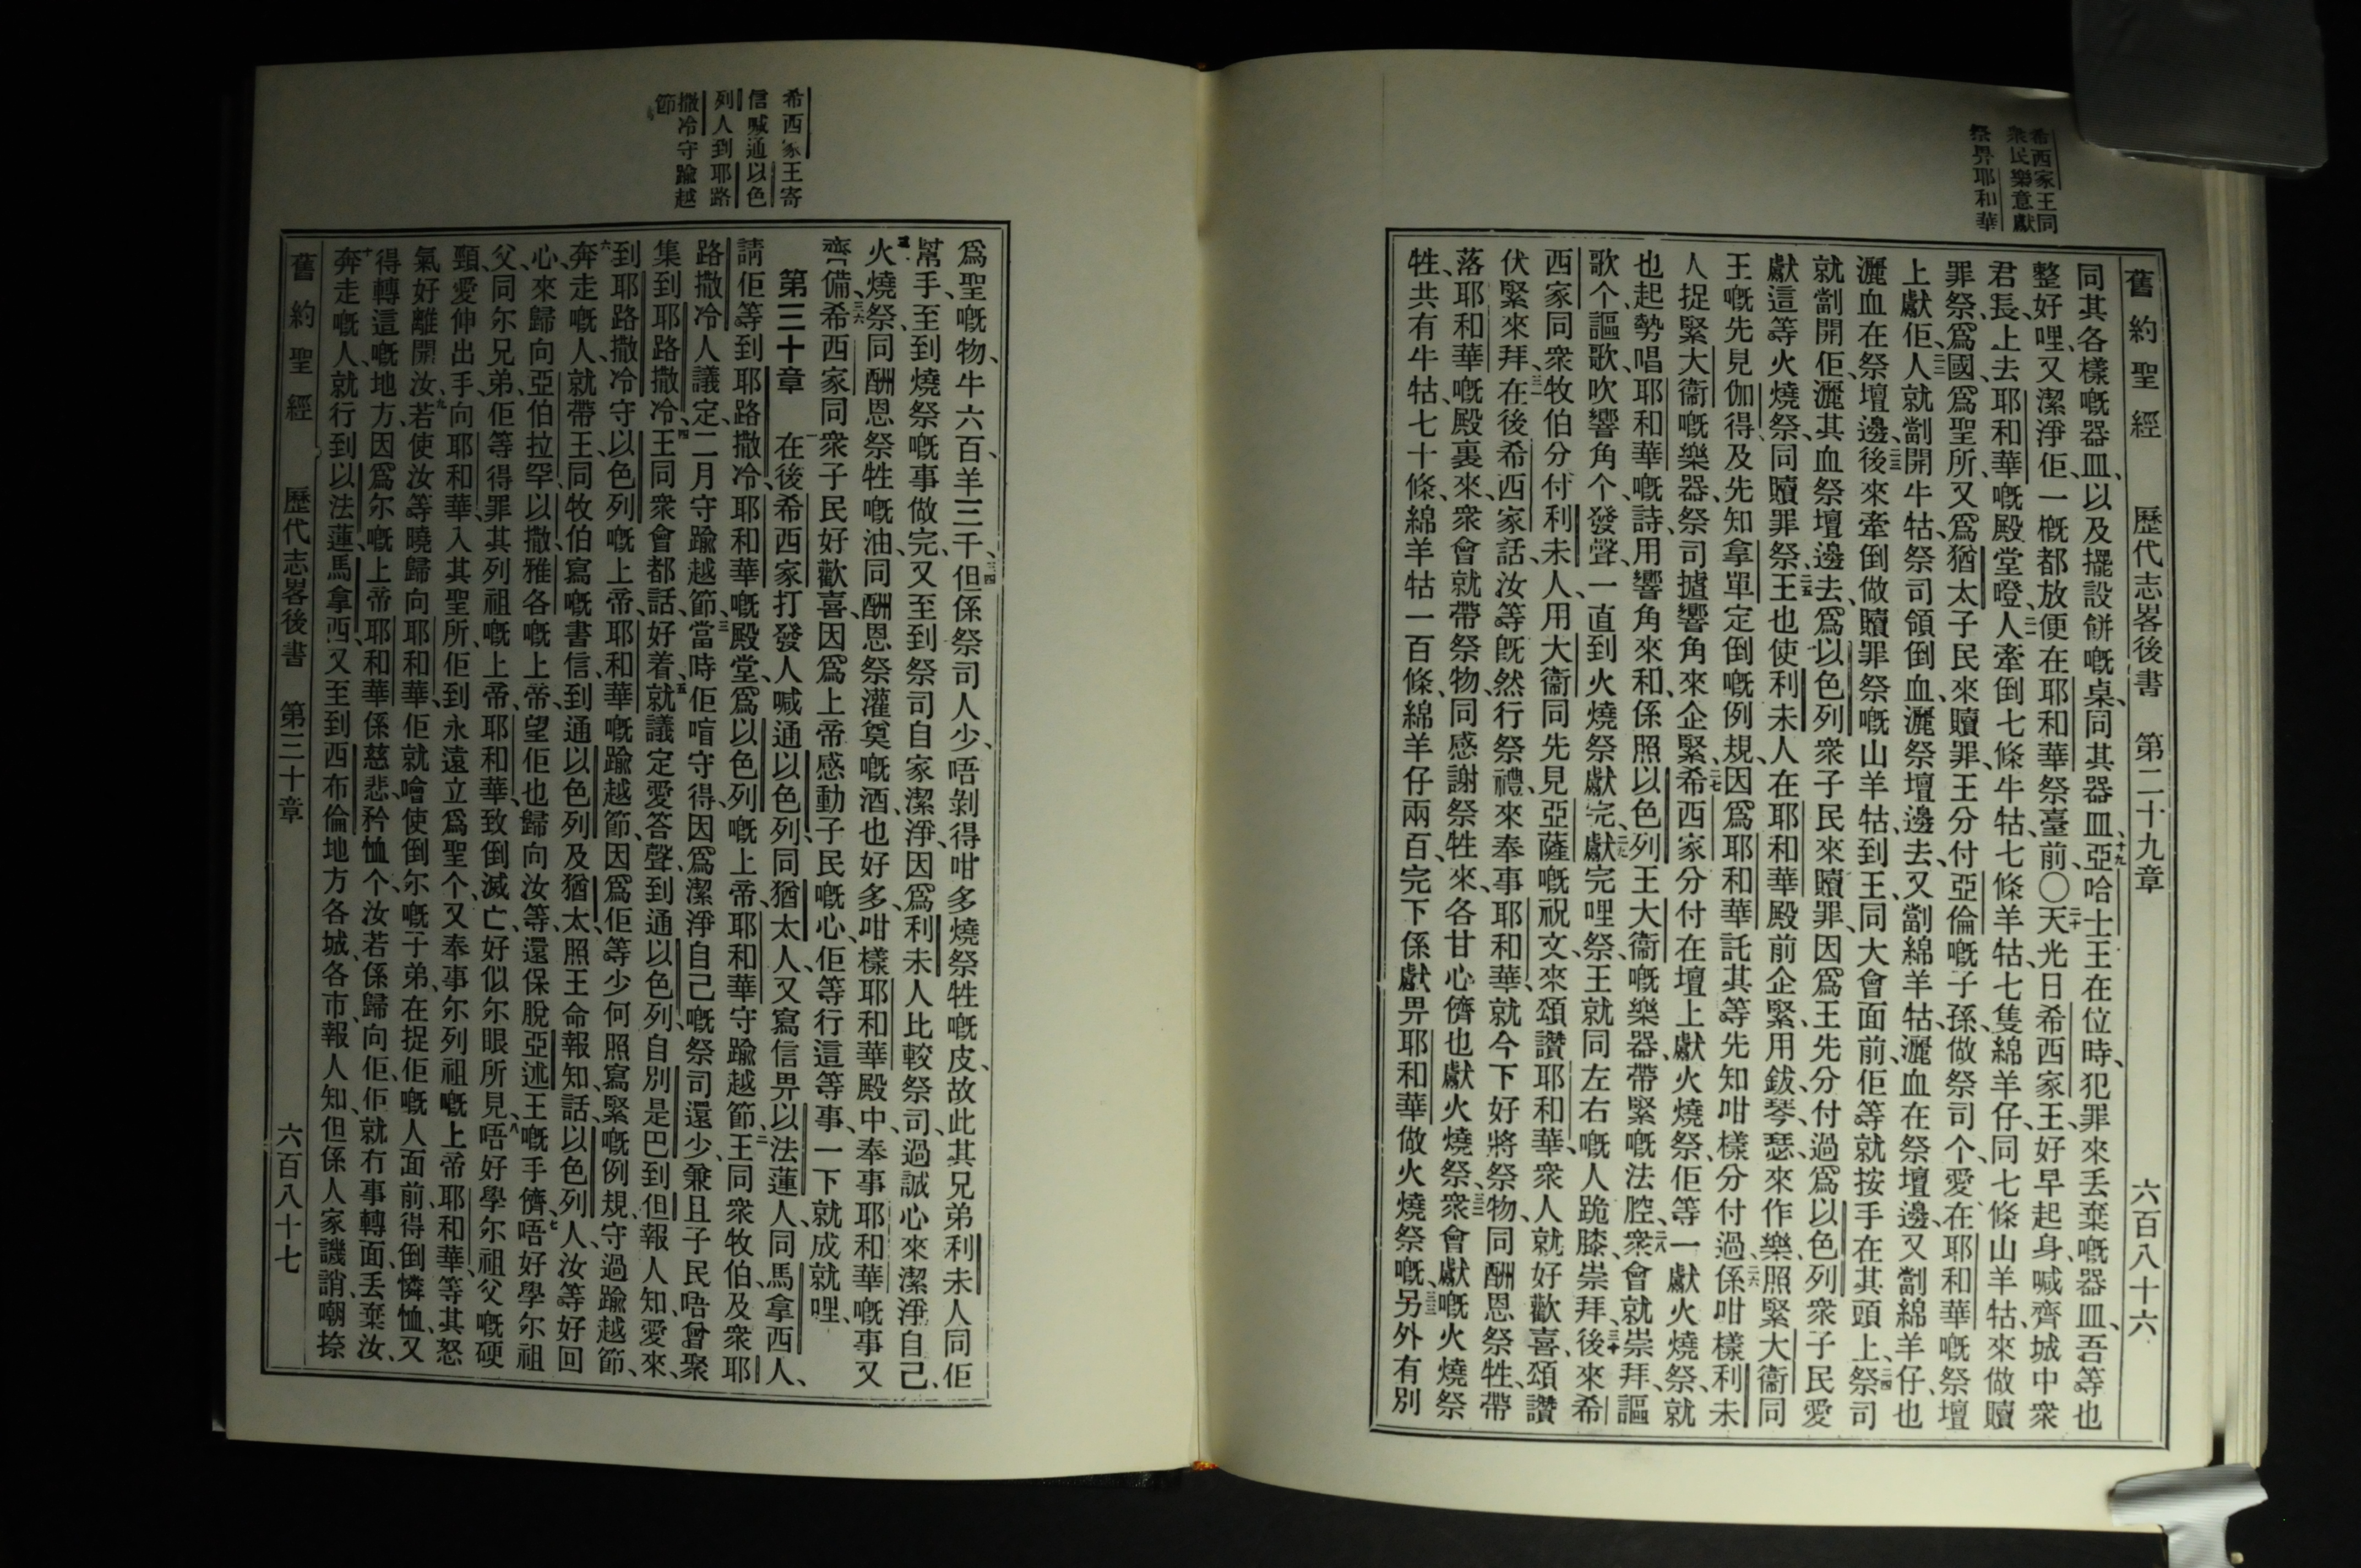 希西家王同
衆民樂意獻
祭畀耶和華
舊約聖經 歷代志畧後書 第二十九章 六百八十六
同其各樣嘅器皿、以及擺設餅嘅桌、同其器皿、十九亞哈士王在位時、犯罪來丟棄嘅器皿、吾等也
整好哩、又潔淨佢、一概都放便在耶和華祭臺前、〇二十天光日希西家王、好早起身、喊齊城中衆
君長、上去耶和華嘅殿堂嶝、二一人牽倒七條牛牯、七條羊牯、七隻綿羊仔、同七條山羊牯、來做贖
罪祭、爲國、爲聖所、又爲猶太子民來贖罪、王分付亞倫嘅子孫做祭司个、愛在耶和華嘅祭壇
上獻佢、二二人就劏開牛牯、祭司領倒血、灑祭壇邊去、又劏綿羊牯、灑血在祭壇邊、又劏綿羊仔、也
灑血在祭壇邊、二三後來牽倒做贖罪祭嘅山羊牯、到王、同大會面前、佢等就按手在其頭上、二四祭司
就劏開佢、灑其血祭壇邊去、爲以色列衆子民來贖罪、因爲王先分付過、爲以色列衆子民愛
獻這等火燒祭、同贖罪祭、二五王也使利未人在耶和華殿前企緊、用鈸、琴、瑟、來作樂、照緊大衞同
王嘅先見伽得、及先知拿單、定倒嘅例規、因爲耶和華託其等先知咁樣分付過、二六係咁樣利未
人捉緊大衞嘅樂器、祭司攎響角來企緊、二七希西家分付在壇上獻火燒祭、佢等一獻火燒祭、就
也起勢唱耶和華嘅詩、用響角來和、係照以色列王大衞嘅樂器、帶緊嘅法腔、二八衆會就崇拜、謳
歌个、謳歌、吹響角个、發聲、一直到火燒祭獻完、二九獻完哩祭、王就同左右嘅人跪膝、崇拜、三十後來希
西家同衆牧伯分付利未人、用大衞同先見亞薩嘅祝文、來頌讚耶和華、衆人就好歡喜、頌讚
伏緊來拜、三一在後希西家話、汝等旣然行祭禮、來奉事耶和華、就今下好將祭物、同酬恩祭牲、帶
落耶和華嘅殿裏來、衆會就帶祭物、同感謝祭牲來、各甘心儕也獻火燒祭、三二衆會獻嘅火燒祭
牲、共有牛牯七十條、綿羊牯一百條、綿羊仔兩百、完下係獻畀耶和華做火燒祭嘅、三三另外有別
希西家王寄
信喊通以色
列人到耶路
撒冷守踰越
節
爲聖嘅物、牛六百、羊三千、三四但係祭司人少、唔剝得咁多燒祭牲嘅皮、故此其兄弟利未人同佢
幫手、至到燒祭嘅事做完、又至到祭司自家潔淨、因爲利未人比較祭司、過誠心來潔淨自己、三五
火燒祭、同酬恩祭牲嘅油、同酬恩祭灌奠嘅酒、也好多、咁樣耶和華殿中、奉事耶和華嘅事又
齊備、三六希西家同衆子民好歡喜、因爲上帝感動子民嘅心、佢等行這等事、一下就成就哩、
第三十章 一在後希西家打發人喊通以色列、同猶太人、又寫信畀以法蓮人、同馬拿西人、
請佢等到耶路撒冷、耶和華嘅殿堂、爲以色列嘅上帝耶和華守踰越節、二王同衆牧伯、及衆耶
路撒冷人議定、二月守踰越節、三當時佢唔守得、因爲潔淨自己嘅祭司還少、兼且子民唔曾聚
集到耶路撒冷、四王同衆會都話、好着、五就議定愛答聲到通以色列、自別是巴到但、報人知、愛來
到耶路撒冷、守以色列嘅上帝、耶和華嘅踰越節、因爲佢等少何照寫緊嘅例規、守過踰越節、
六奔走嘅人、就帶王、同牧伯寫嘅書信、到通以色列及猶太、照王命報知、話、以色列人、汝等好回
心來歸向亞伯拉罕、以撒、雅各嘅上帝、望佢也歸向汝等、還保脫亞述王嘅手儕、七唔好學尔祖
父、同尔兄弟、佢等得罪其列祖嘅上帝、耶和華、致倒滅亡、好似尔眼所見、八唔好學尔祖父嘅硬
頸、愛伸出手、向耶和華、入其聖所、佢到永遠立爲聖个、又奉事尔列祖嘅上帝耶和華、等其怒
氣好離開汝、九若使汝等曉歸向耶和華、佢就噲使倒尔嘅子弟、在捉佢嘅人面前、得倒憐恤、又
得轉這嘅地方、因爲尔嘅上帝、耶和華係慈悲、矜恤个、汝若係歸向佢、佢就冇事轉面、丟棄汝、
十奔走嘅人、就行到以法蓮、馬拿西、又至到西布倫地方各城、各市、報人知、但係人家譏誚、嘲捺
舊約聖經 歷代志畧後書 第三十章 六百八十七